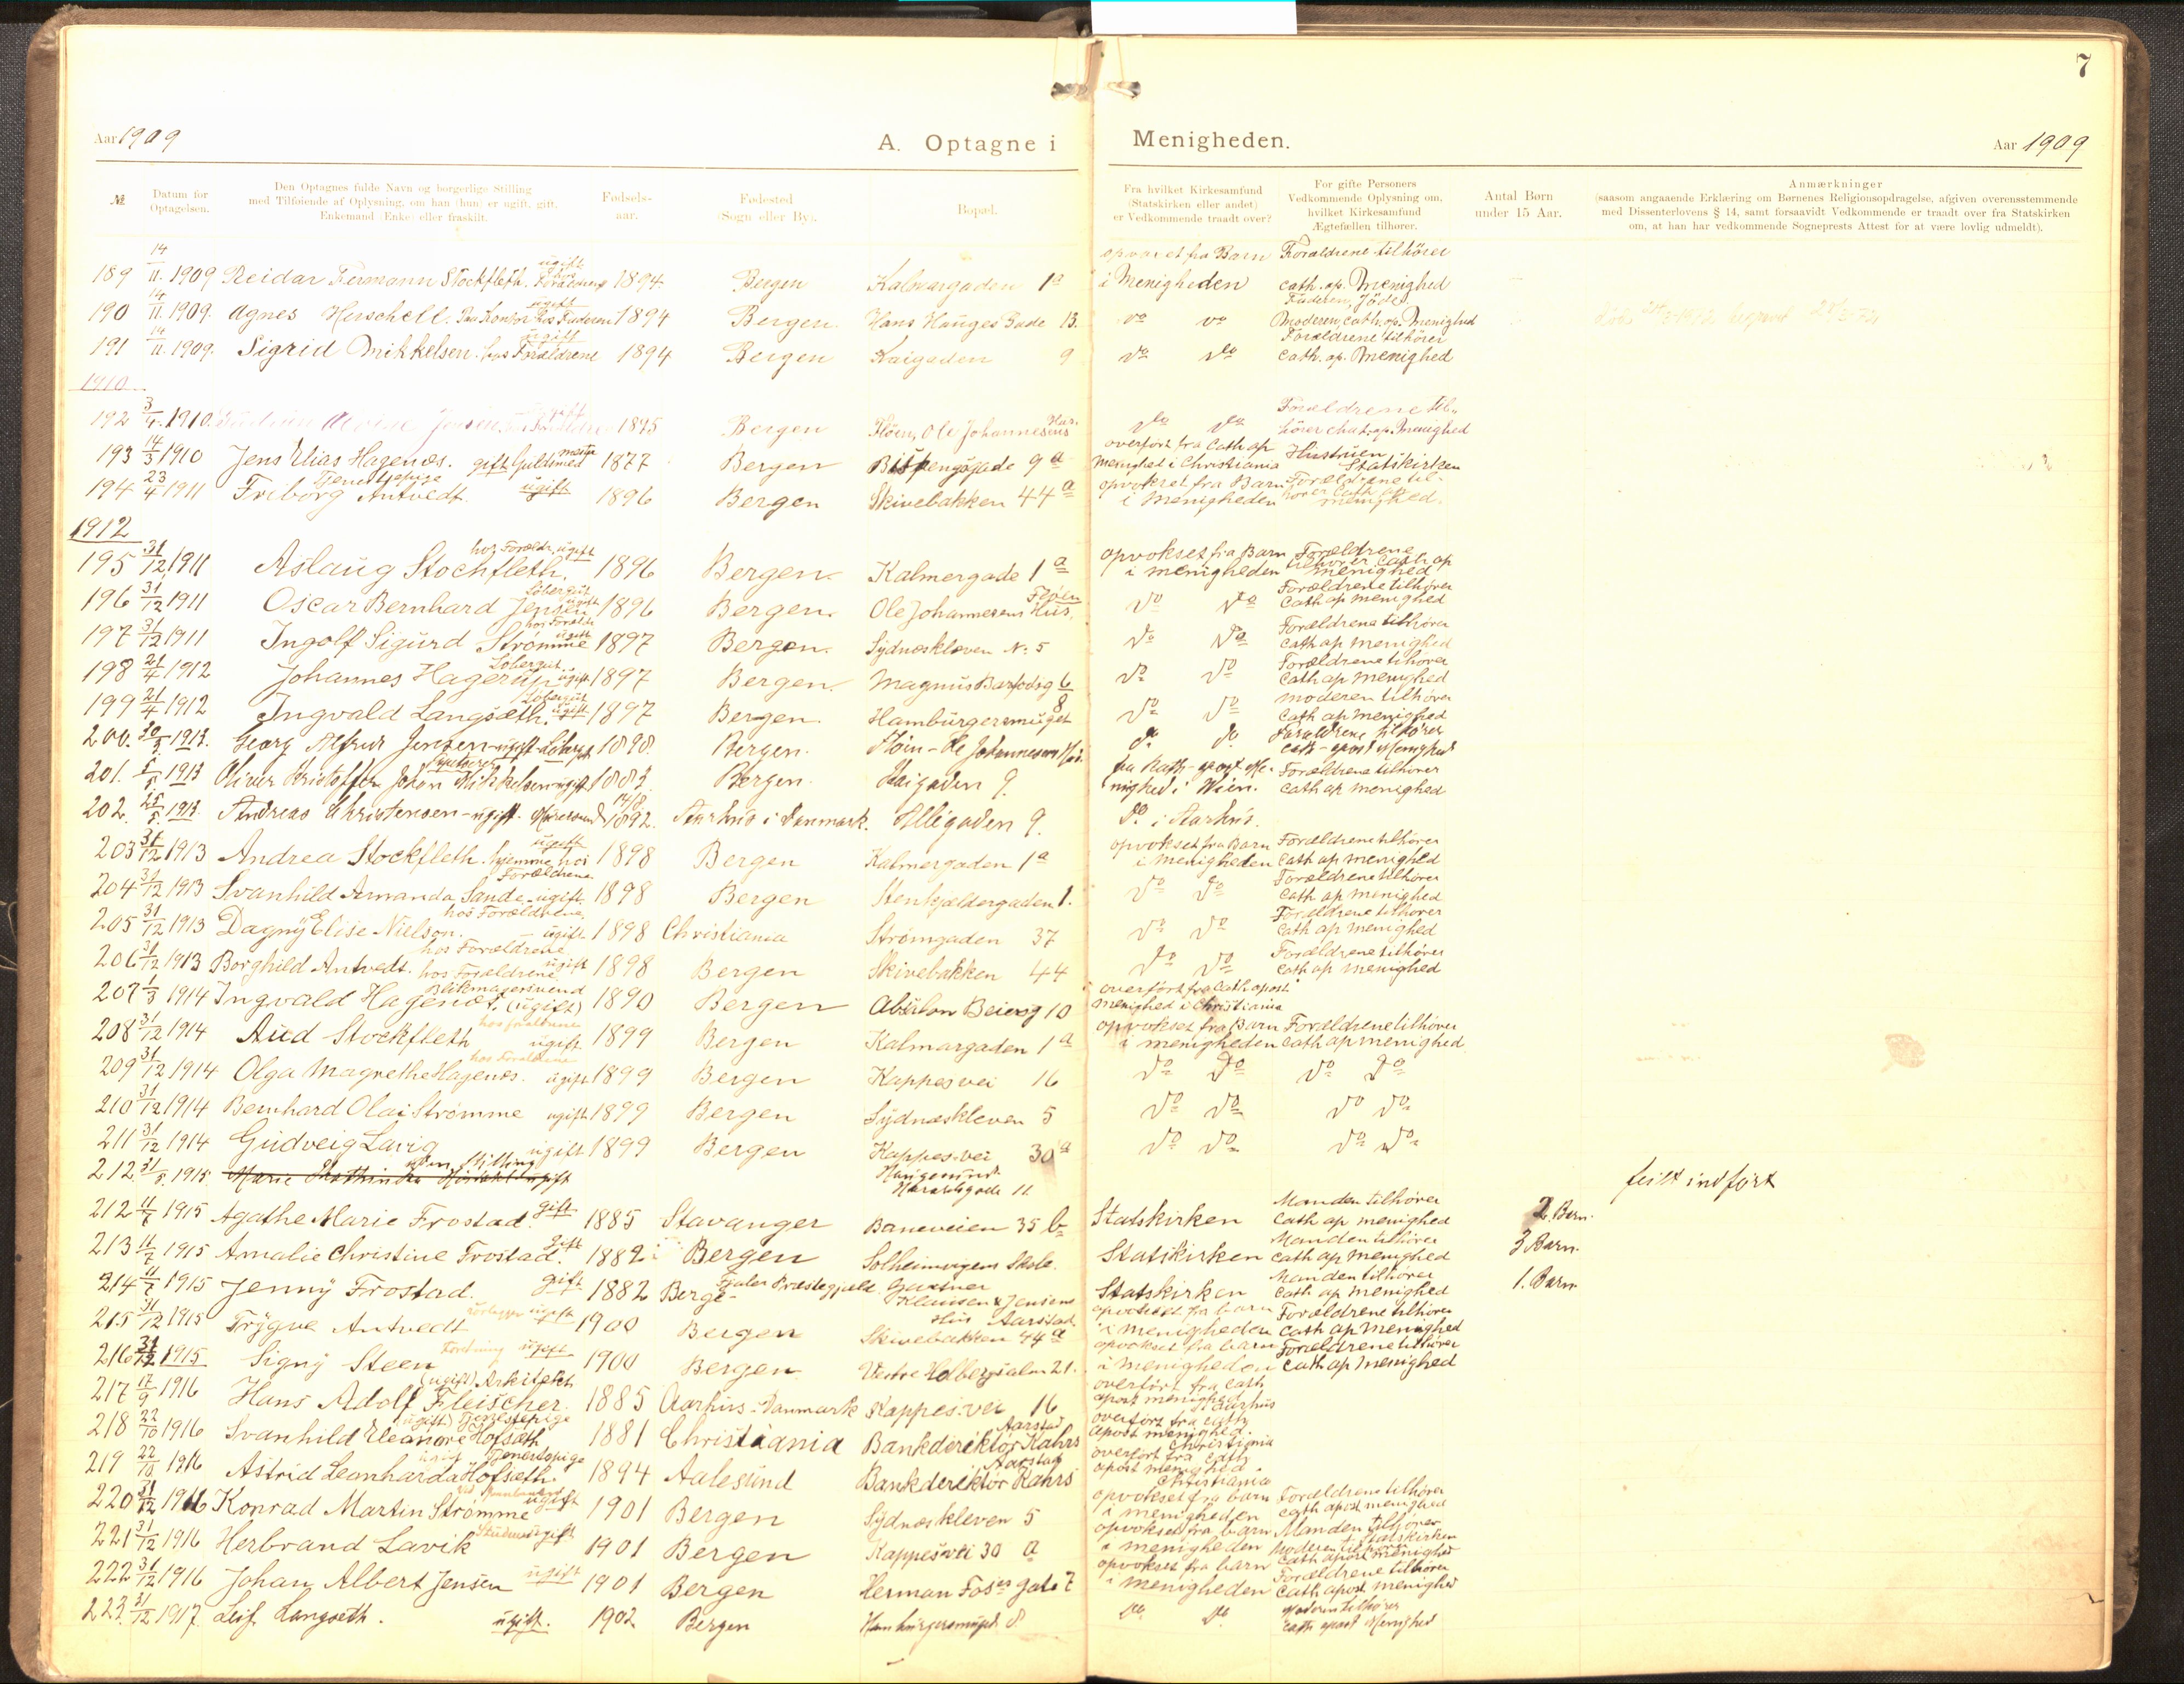 7
Aar 1909 A. Optagne i Menigheden. Aar 1909
№ Datum for Optagelsen. Den Optagnes fulde Navn og borgerlige Stilling med Tilføiende af Oplysning, om han (hun) er ugift, gift, Enkemand (Enke) eller fraskilt. Fødselsaar. Fødested (Sogn eller By). Bopæl. Fra hvilket Kirkesamfund (Statskirken eller andet) er Vedkommende traadt over? For gifte Personers Vedkommende Oplysning om, hvilket Kirkesamfund Ægtefællen tilhører. Antal Børn under 15 Aar. Anmærkninger (saasom angaaende Erklæring om Børnenes Religionsopdragelse, afgiven overensstemmende med Dissenterlovens § 14, samt forsaavidt Vedkommende er traadt over fra Statskirken om, at han har vedkommende Sogneprests Attest for at være lovlig udmeldt).
189 14/11. 1909 Reidar Hermann Stockfleth. ugift hos Forældrene 1894. Bergen Kalmargaden 1a fra Barn i Menigheden Forældrene tilhører cath. ap. Menighed
190 14/11. 1909. Agnes Herschell. ugift Paa Kontor hos Faderen 1894 Bergen. Hans Hauges Gade 13. do do Faderen, Jøde. Moderen, cath. ap. Menighed
191 14/11. 1909. Sigrid Mikkelsen. ugift hos Forældrene 1894 Bergen Kaigaden 9 do do Forældrene tilhører cath. ap. Menighed
1910
192 3/4. 1910. Jensen 1895 Bergen Fløen, Ole Johannesens Hus. do do Forældrene tilhører cath. ap. Menighed
193 14/3 1910 Jens Elias Hagenæs. gift Guldsmedmester 1877 Bergen Bispengsgade 9a overført fra Cath ap Menighed i Christiania Hustruen Statskirken
194 23/4 1911 Friborg Antvedt. Tjenestepige ugift 1896 Bergen Skivebakken 44a opvokset fra Barn i Menigheden Forældrene tilhører Cath ap menighed.
1912
195 31/12 1911 Aslaug Stockfleth. hos Forældr. ugift 1896 Bergen. Kalmergade 1a opvokset fra Barn i menigheden Forældrene tilhører Cath ap menighed
196 31/12 1911 Oscar Bernhard Jensen Løbergut ugift 1896 Bergen. Ole Johannesens Hus, Fløen do do Forældrene tilhører Cath ap menighed
197 31/12 1911 Ingolf Sigurd Strømme hos Forældr ugift 1897 Bergen. Sydneskleven N: 5 do do Forældrene tilhører Cath ap menighed
198 21/4 1912 Johannes Hagerup Løbergut. ugift 1897 Bergen. Magnus Barfodsg 6 do do Forældrene tilhører Cath ap menighed
199 21/4 1912 Ingvald Langsæth. Løbergut ugift 1897 Bergen. Hamburgersmuget 8 do do moderen tilhører Cath ap menighed
200. 1913. Georg Alfred Jensen - ugift - Løbergut 1898. Bergen. Fløen - Ole Johannesens Hus. do do Forældrene tilhører cath - apost Menighed
201. 1913 Oliver Kristoffer Johan Mikkelsen - ugift 1883. Bergen. Kaigaden 9. fra Kath - apost. Menighed i Wien. Forældrene tilhører Cath ap menighed
202. 25/5. 1913. Andreas Christensen - ugift. 14/8. 1892. Aarhus i Danmark. Allegaden 9. Do. i Aarhus.
203 31/12 1913 Andrea Stockfleth. ugift hjemme hos Forældrene 1898 Bergen Kalmergaden 1a opvokset fra Barn i menigheden Forældrene tilhører Cath ap menighed
204 31/12 1913 Svanhild Amanda Sande - ugift. 1898 Bergen Stenkjældergaden 1. do do Forældrene tilhører Cath ap menighed
205 31/12 1913 Dagny Elise Nielsen. hos Forældrene, - ugift 1898 Christiania Strømgaden 37 do do Forældrene tilhører Cath ap menighed
206 31/12 1913 Borghild Antvedt. hos Forældrene ugift 1898 Bergen Skivebakken 44 do do Forældrene tilhører Cath ap menighed
207 1/3 1914 Ingvald Hagenæs. Blikmagersvend (ugift) 1890 Bergen Absalon Beiersg 10 overført fra Cath apost menighed i Christiania
208 31/12 1914 Aud Stockfleth hos forældrene ugift 1899 Bergen Kalmargaden 1a opvokset fra Barn i menigheden Forældrene tilhører Cath ap menighed
209 31/12 1914 Olga Magrethe Hagenæs. hos Forældrene ugift 1899 Bergen Kappesvei 16 do do do do
210 31/12 1914 Bernhard Olai Strømme ugift 1899 Bergen Sydneskleven 5 do do do do
211 31/12 1914 Gudveig Lavig ugift 1899 Bergen Kappesvei 30a do do do do
212. 1915 Marie ugift uden Stilling Haugesund Haraldsgade 11. feilt indført
212 11/7 1915 Agathe Marie Frostad. gift 1885 Stavanger Baneveien 35 b Statskirken Manden tilhører Cath ap menighed 2. Barn.
213 11/7 1915 Amalie Christine Frostad. gift 1882 Bergen Solheimsvigens Skole. Statskirken Manden tilhører Cath ap menighed 3 Barn.
214 11/7 1915 Jenny Frostad. gift 1882 Præstegjeld. Gartner Klausen & Jensens Hus Aarstad Statskirken Manden tilhører Cath ap menighed 1. Barn
215 31/12 1915 Trygve Antvedt ugift 1900 Bergen Skivebakken 44a opvokset fra barn i menigheden Forældrene tilhører Cath ap menighed
216 31/12 1915 Signy Steen ugift 1900 Bergen Vestre Holbergsalm 21. opvokset fra barn i menigheden Forældrene tilhører Cath ap menighed
217 17/9 1916 Hans Adolf Fleischer. (ugift) Arkitekt 1885 Aarhus - Danmark Kappes. vei 16 overført fra cath apost menighed Aarhus
218 22/10 1916 Svanhild Eleanore Hofsæth (ugift) Tjenestepige 1881 Christiania Bankdirektør Kahrs Aarstad overført fra cath apost menighed. Christiania
219 22/10 1916 Astrid Leonharda Hofseth. Tjenestepige 1894 Aalesund Bankderektør Kahrs Aarstad overført fra cath apost menighed. Christiania
220 31/12 1916 Konrad Martin Strømme ugift 1901 Bergen Sydneskleven 5 opvokset fra barn i menigheden Forældrene tilhører cath apost menighed
221 31/12 1916 Herbrand Lavik Student ugift 1901 Bergen Kappesvei 30 a opvokset fra barn i menigheden Manden tilhører Statskirken Moderen tilhører Cath apost menighed
222 31/12 1916 Johan Albert Jensen ugift 1901 Bergen Herman Foss gate 7 opvokset fra barn i menigheden Forældrene tilhører Cath apost menighed
223. 31/12 1917. Leif Langseth. ugift. 1902 Bergen Hamburgersmuget 8 do do Moderen tilhører Cath apost Menighed